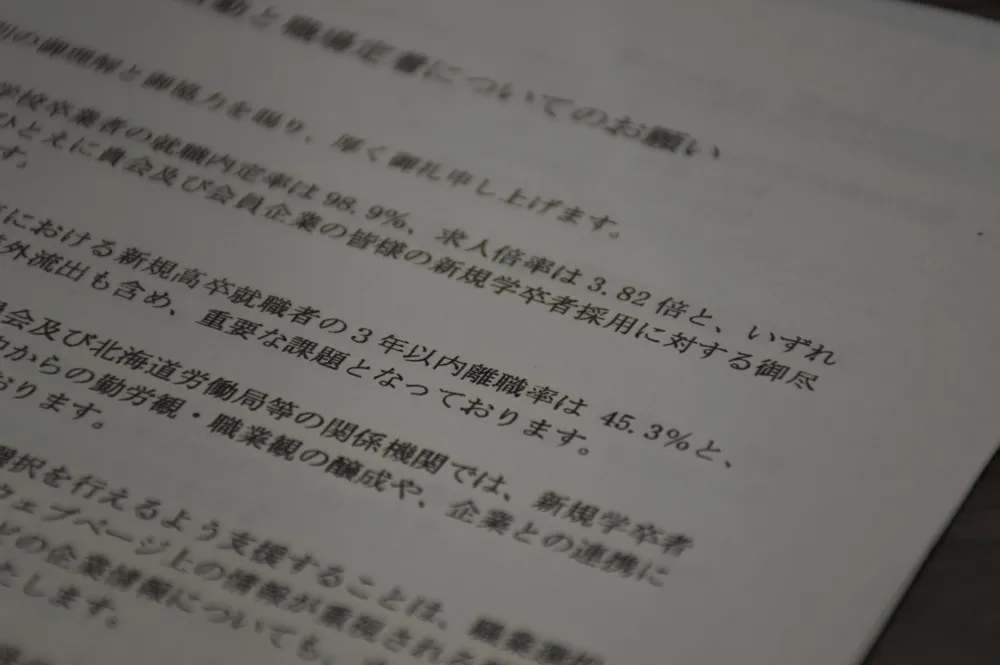 動と職場定着についてのお願い
別の御理解と御協力を賜り、厚く御礼申し上げます。
学校卒業者の就職内定率は98.9%、求人倍率は3.82倍と、いずれ
ひとえに貴会及び会員企業の皆様の新規学卒者採用に対する御尽
す。
における新規高卒就職者の3年以内離職率は 45.3%と、
外流出も含め、重要な課題となっております。
会及び北海道労働局等の関係機関では、新規学卒者
からの勤労観・職業観の醸成や、企業との連携に
おります。
選択を行えるよう支援することは、職業選択
ウェブページ上の情報が重視される
の企業情報についても、
とします。